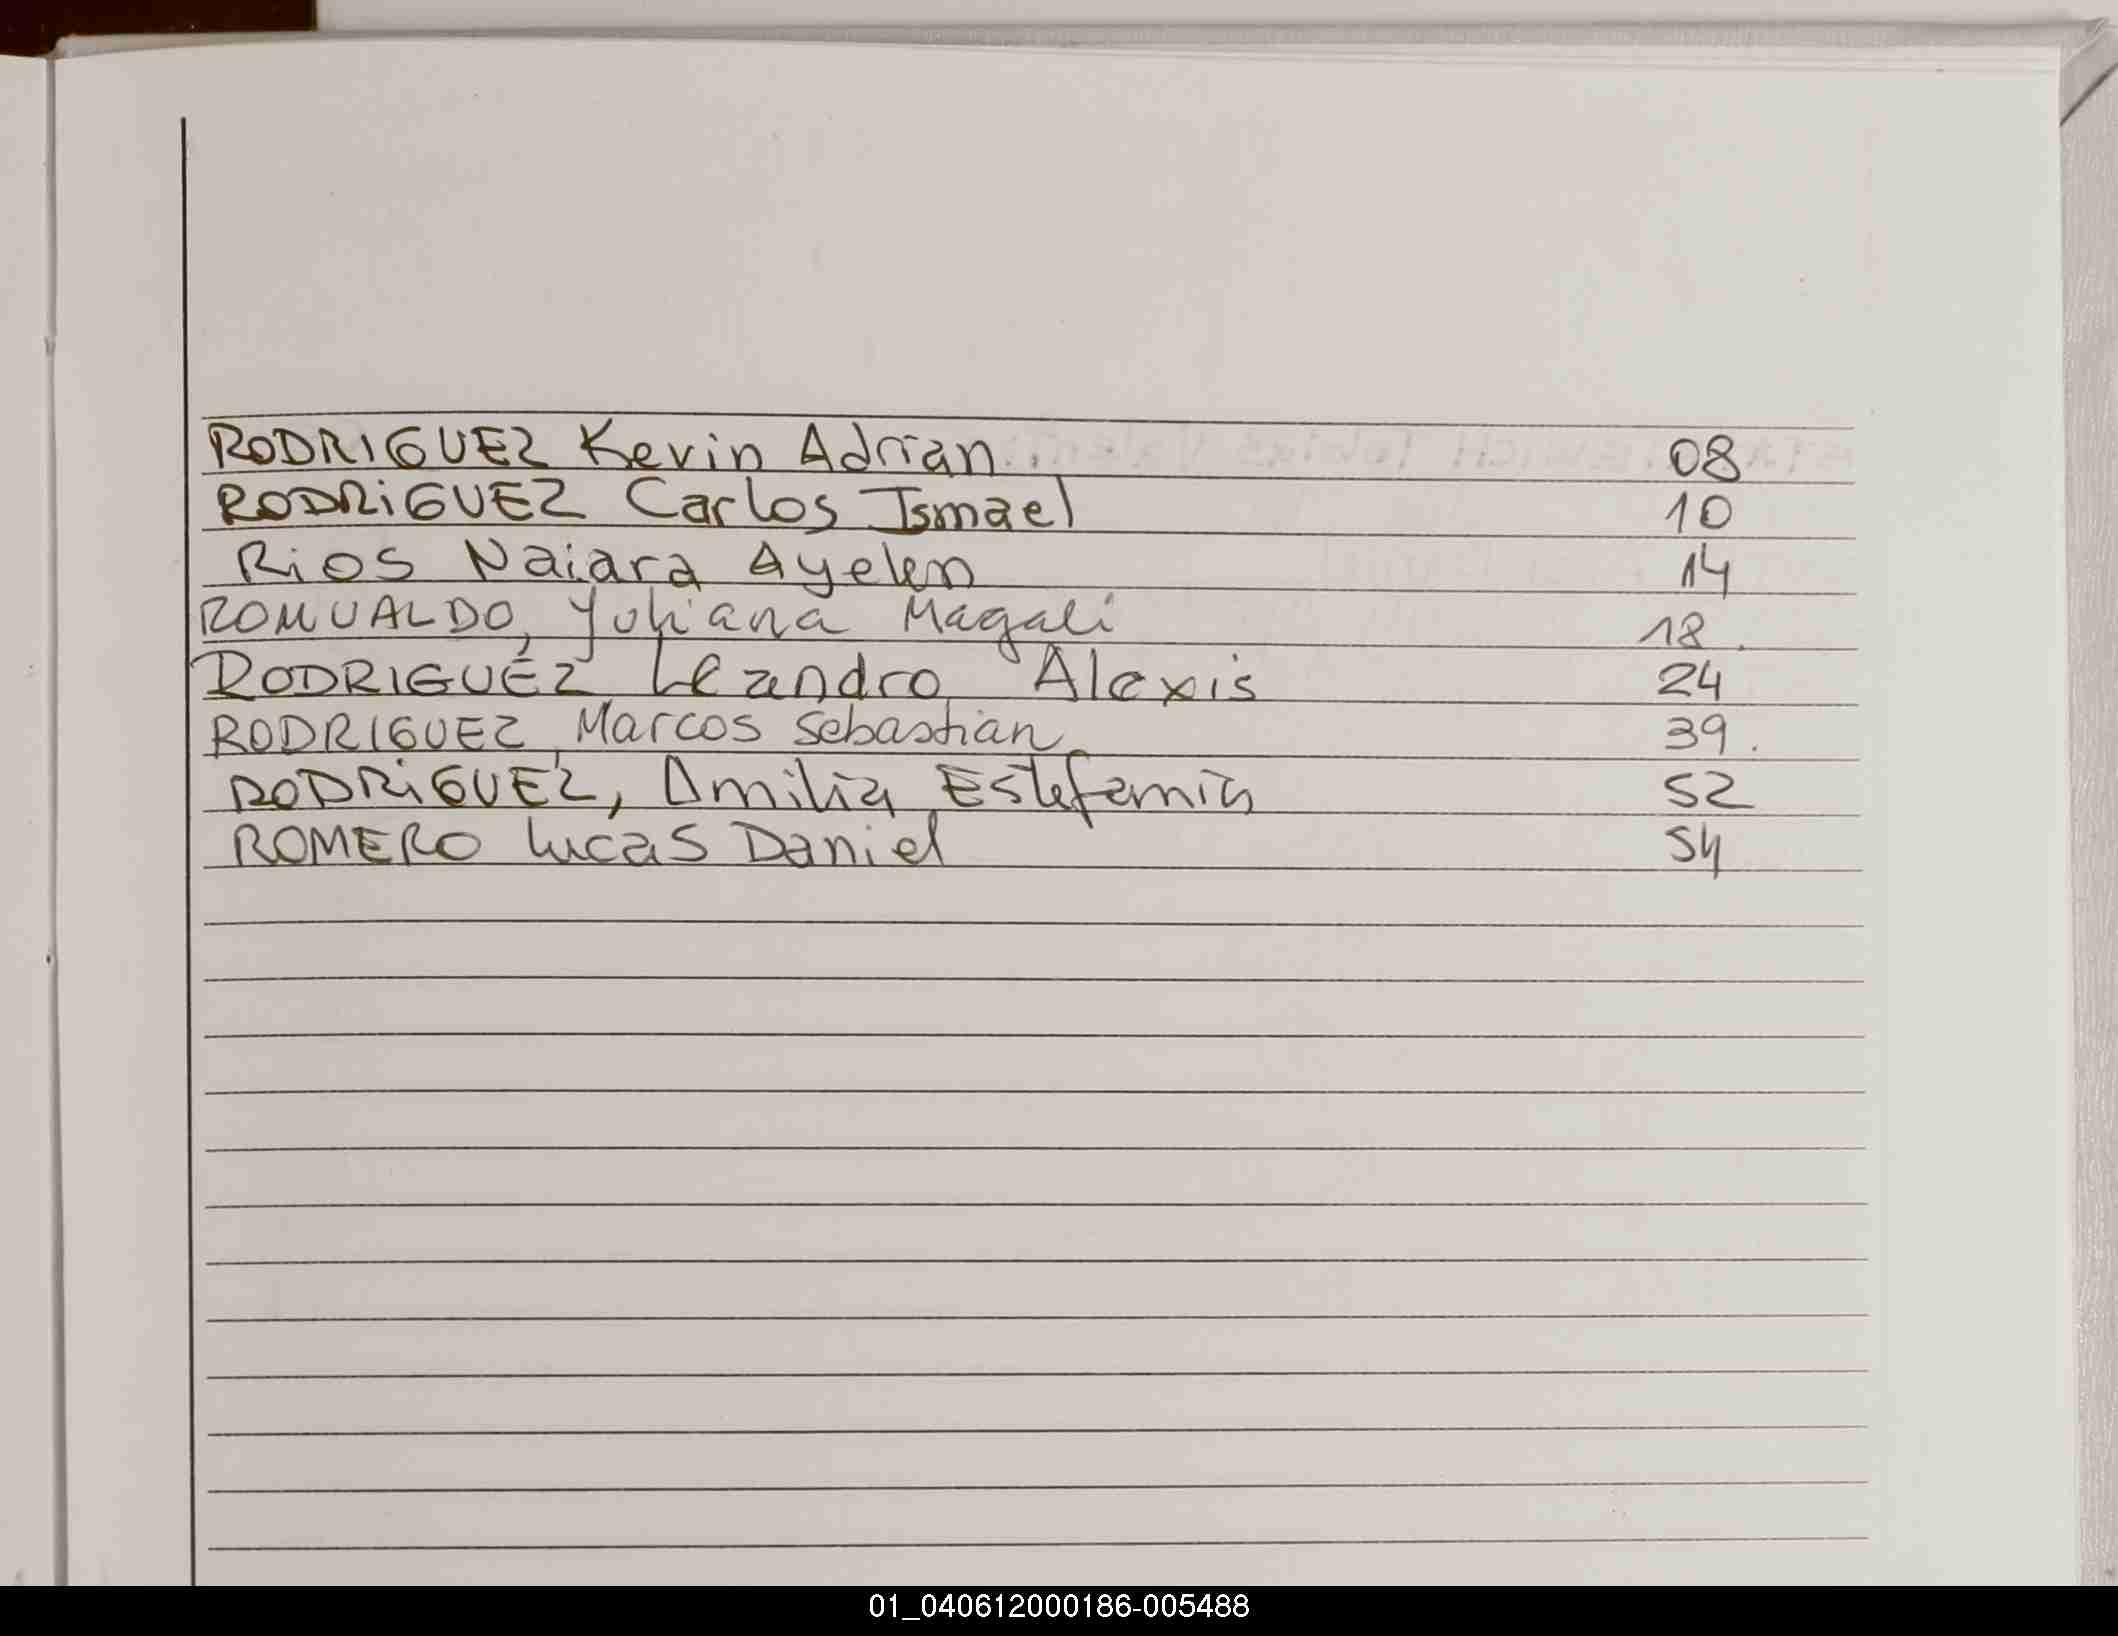 RODRIGUEZ Kevin Adrian 08
RODRiGUEZ Carlos Ismael 10
Rios Naiara Ayelen 14
ROMUALDO, Yuliana Magali 18.
RODRIGUEZ Leandro Alexis 24
RODRIGUEZ, Marcos Sebastian 39.
RODRiGUEZ, Amilia Estefania 52
ROMERO Lucas Daniel 54
01_040612000186-005488